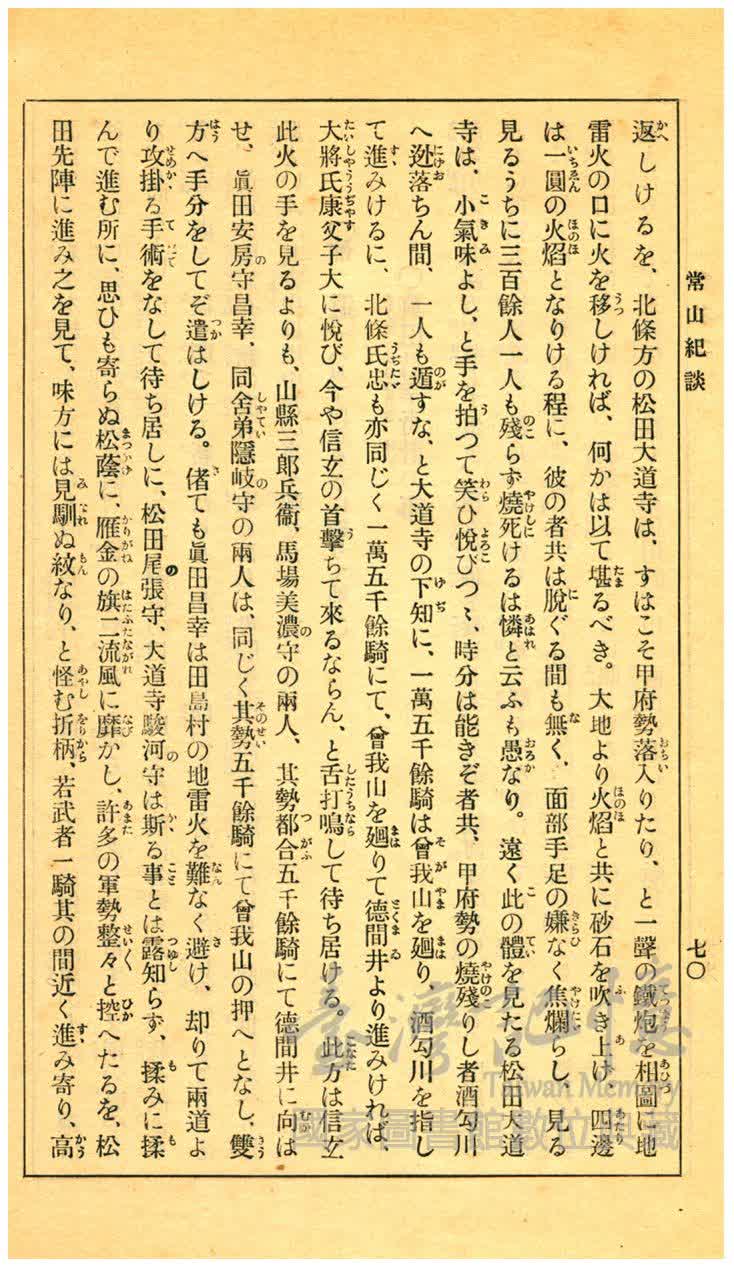 常山紀談
七〇
返しけるを、北條方の松田大道寺は、すはこそ甲府勢落入りたり、と一聲の鐵炮を相圖に地
雷火の口に火を移しければ、何かは以て堪るべき。大地より火焰と共に砂石を吹き上げ、四邊
は一圓の火焰となりける程に、彼の者共は脫ぐる間も無く、面部手足の嫌なく焦爛らし、見る
見るうちに三百餘人一人も殘らず燒死けるは憐と云ふも愚なり。遠く此の體を見たる松田大道
寺は、小氣味よし、と手を拍つて笑ひ悅びつゝ、時分は能きぞ者共、甲府勢の燒殘りし者酒勾川
へ迯落ちん間、一人も遁すな、と大道寺の下知に、一萬五千餘騎は曾我山を廻り、酒勾川を指し
て進みけるに、北條氏忠も亦同じく一萬五千餘騎にて、曾我山を廻りて德間井より進みければ、
大將氏康父子大に悅び、今や信玄の首擊ちて來るならん、と舌打鳴して待ち居ける。此方は信玄
此火の手を見るよりも、山縣三郎兵衞、馬場美濃守の兩人、其勢都合五千餘騎にて德間井に向は
せ、眞田安房守昌幸、同舍弟隱岐守の兩人は、同じく其勢五千餘騎にて曾我山の押へとなし、雙
方へ手分をしてぞ遣はしける。偖ても眞田昌幸は田島村の地雷火を難なく避け、却りて兩道よ
り攻掛る手術をなして待ち居しに、松田尾張守、大道寺駿河守は斯る事とは露知らず、揉みに揉
んで進む所に、思ひも寄らぬ松蔭に、雁金の旗二流風に靡かし、許多の軍勢整々と控へたるを、松
田先陣に進み之を見て、味方には見馴ぬ紋なり、と怪む折柄、若武者一騎其の間近く進み寄り、高
臺灣記憶
Taiwan Memory
國家圖書館數位典藏